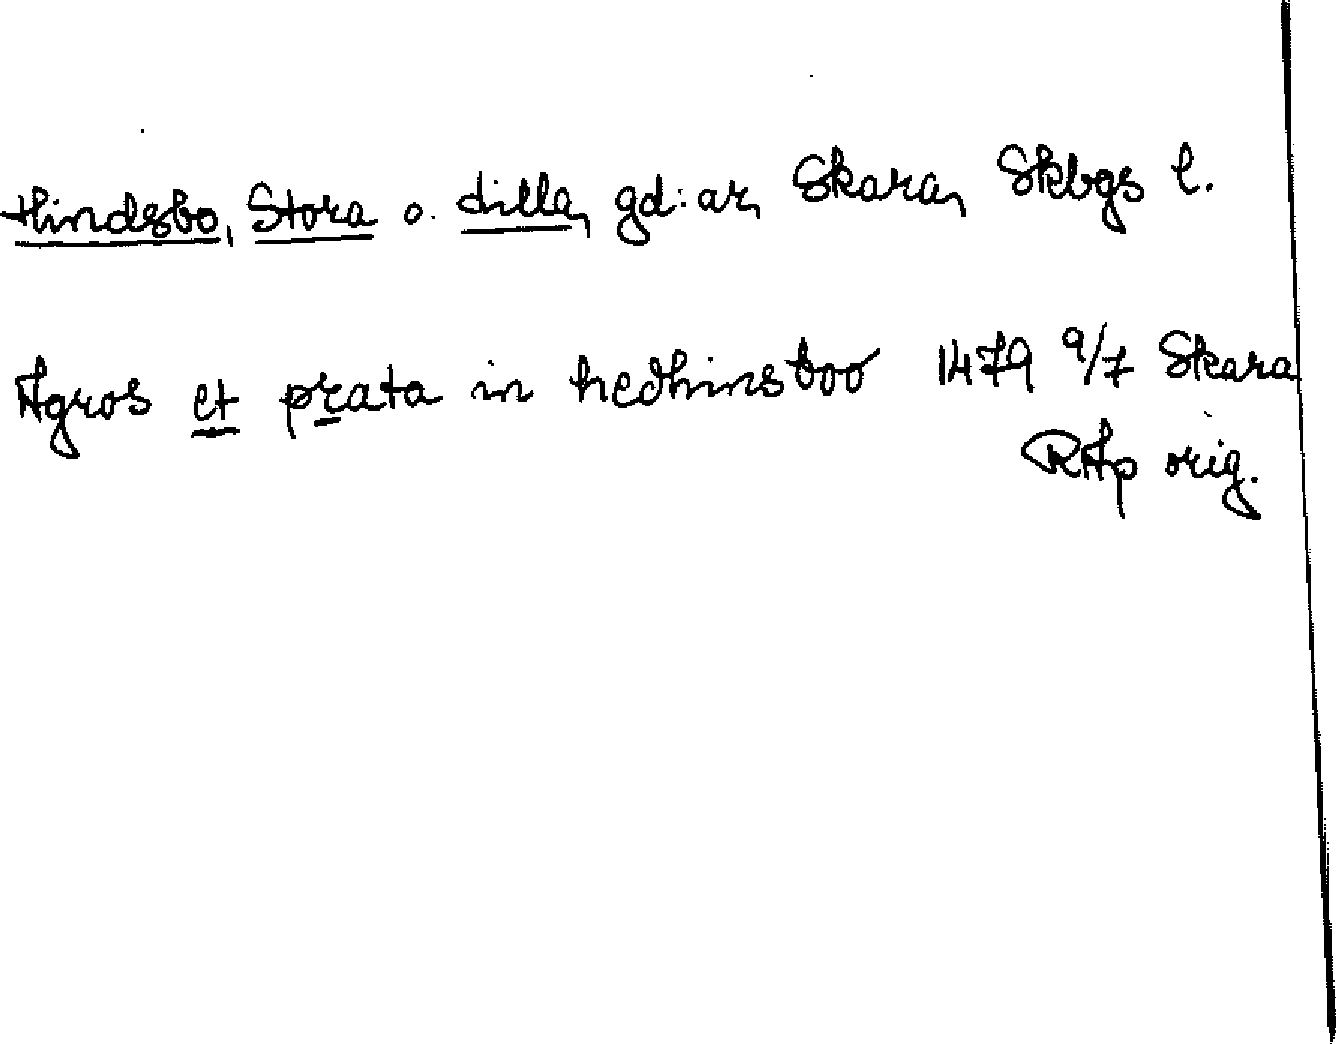 Hindsbo, Stora o. Lilla, gd:ar, Skara, Skbgs l.
Agros et prata in hedhinsboo 1479 9/7 Skara
RAp orig.